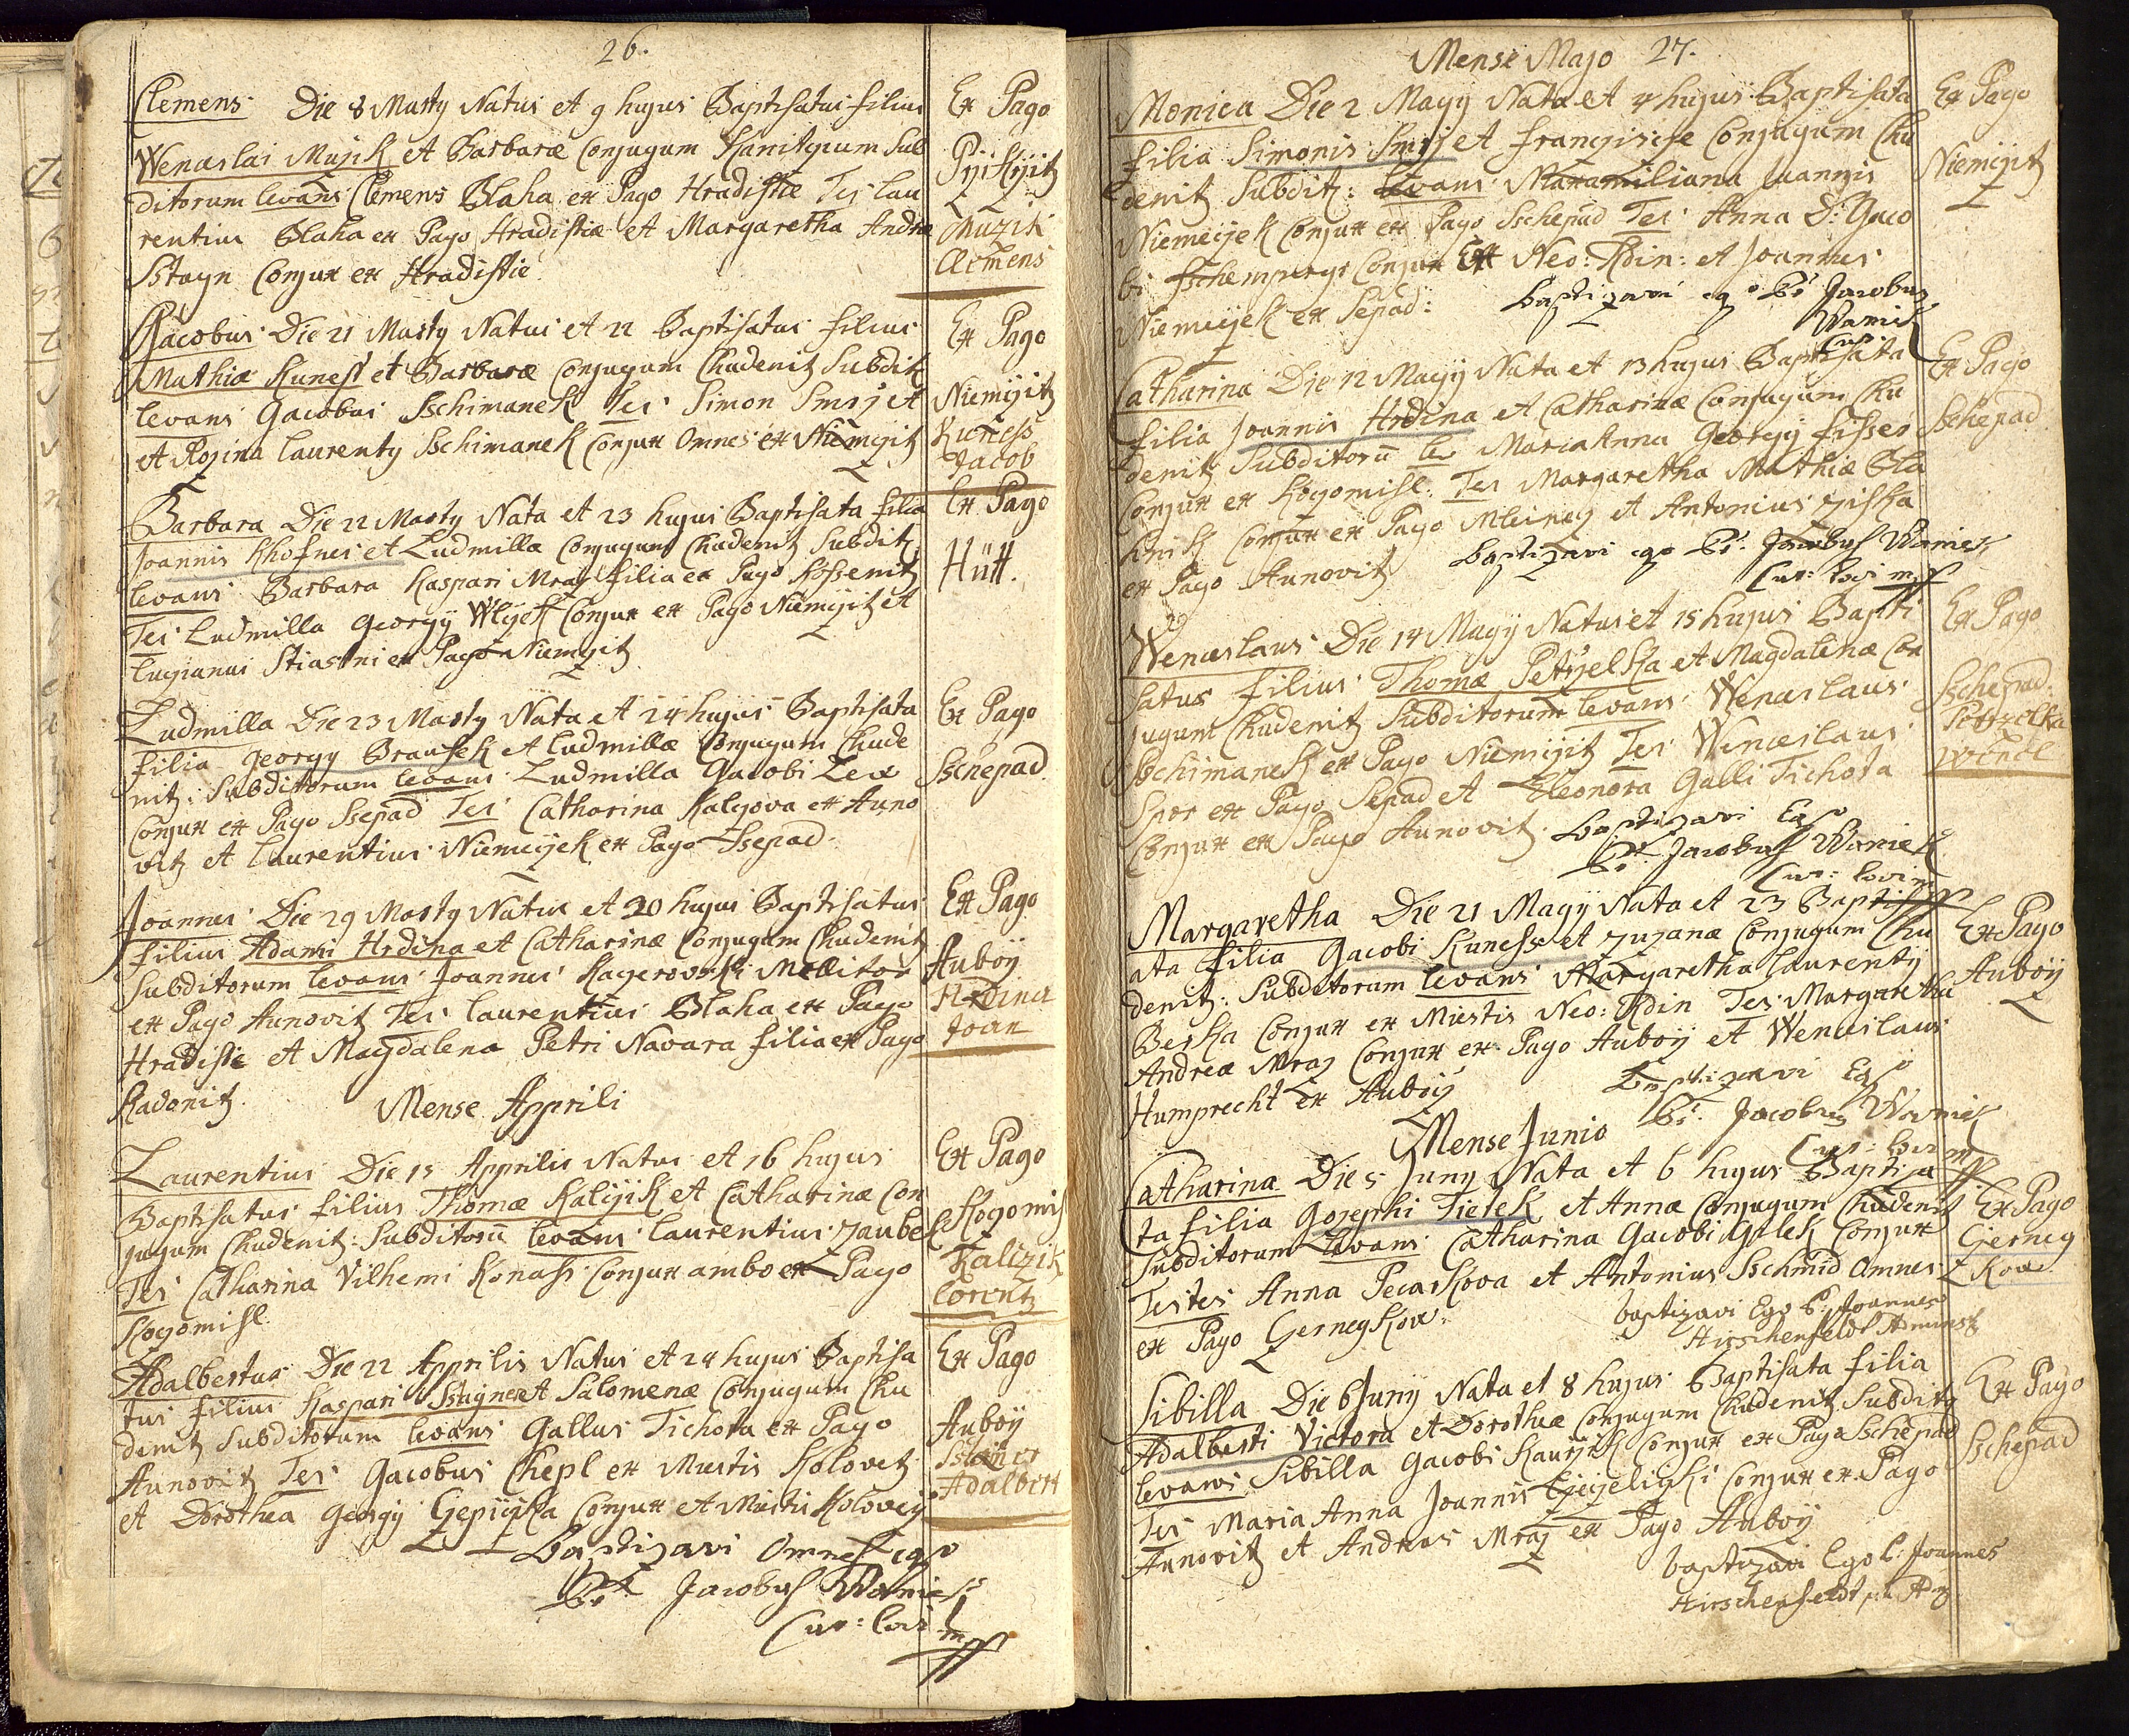 26.
Clemens Die 8 Marty Natus et 9 hujus Baptisatus filius
Wenceslai Mujik et Barbaræ Conjugum Kanitzium Sub
ditorum levans Clemens Blaha ex Pago Hradistie Tes Lau
rentius Blaha ex Pago Hradistie et Margaretha Andreæ
Stayn Conjux ex Hradistie
Ex Pago
Muzik
Clemens
Jacobus Die 21 Marty Natus et 22 Baptisatus filius
Mathiæ Kunesch et Barbaræ Conjugum Chudenitz Subdit
levans Gacobus Sschimanek Tes Simon Smrz et
et Rozina Laurenty Sschimanek Conjux Omnes ex Niemczitz
Ex Pago
Niemczitz
Kuness
Jacob
Barbara Die 22 Marty Nata et 23 hujus Baptisata filia
Joannis Khofner et Ludmillæ Conjugum Chudenitz Subdit
levans Barbara Kaspari Mraz filia ex Pago Kossenitz
Tes Ludmilla Georgy Wlczek Conjux ex Pago Niemczitz et
Luzianus Stiastni ex Pago Niemczitz
Ex Pago
Hütt.
Ludmilla Die 23 Marty Nata et 24 hujus Baptisata
filia Georgy Brausek et Ludmillæ Conjugum Chude
nitz: Subditorum levans Ludmilla Gacobi Lex
Conjux ex Pago Ssepad Tes Catharina Kalczova ex Auno
vitz et Laurentius Niemeczek ex Pago Ssepad
Ex Pago
Sschepad
Joannes Die 29 Marty Natus et 30 hujus Baptisatus
filius Adami Hrdina et Catharinæ Conjugum Chudenitz
Subditorum levans Joannes Kagerovski Molitor
ex Pago Aunovitz Tes Laurentius Blaha ex Pago
Hradistie et Magdalena Petri Navara filia ex Pago
Radonitz.
Ex Pago
Auboÿ
Hrdina
Joan
Mense Apprili
Laurentius Die 15 Apprilis Natus et 16 hujus
Baptisatus filius Thomæ Kalczik et Catharinæ Con
jugum Chudenitz: Subditorū levans Laurentius Zaube
Tes Catharina Vilhemi Konass Conjux ambo ex Pago
Kozomisl
Ex Pago
Kozomis
Kalizik
Lorentz
Adalbertus Die 22 Apprilis Natus et 24 hujus Baptisa
tus filius Kaspari Stayner et Salomenæ Conjugum Chu
denitz Subditorum levans Gallus Tichota ex Pago
Aunovitz Tes Gacobus Chepl ex Miestis Kolovetz
et Dorothea Georgÿ Czepiczka Conjux et Miestis Kolovecz
Ex Pago
Auboÿ
Adalbert
Baptizavi Omnes ego
Pr Jacobus Waniek
Cur: Loci
mpp
Mense Majo 27.
Monica Die 2 Mayÿ Nata et 4 hujus Baptisata
filia Simonis Smrz et Francziscæ Conjugum Chu
denitz Subdit: levans Maxamiliana Joannis
Niemeczek Conjux ex Pago Sschepad Tes Anna D: Gaco
bi Conjux Ex Neo: Rdin: et Joannes
Niemeczek ex Sepad:
Baptizavi ego Pr Jacobus
Waniek
Cur
Ex Pago
Niemczitz
Catharina Die 12 Mayÿ Nata et 13 hujus Baptisata
filia Joannis Hrdina et Catharinæ Conjugum Chu
denitz Subditorū le Maria Anna Georgÿ Fisser
Conjux ex Kozomisl: Tes Margaretha Mathiæ Bla
Conjux ex Pago et Antonius Ziska
ex Pago Aunovitz
Baptizavi ego Pr: Jacobus Waniek
Cur: loci mpp
Ex Pago
Sschepad
Wenceslaus Die 14 Mayÿ Natus et 15 hujus Bapti
satus filius Thomæ Petrzelka et Magdalenæ Con
jugum Chudenitz Subditorum levans Wenceslaus
Sschimanek ex Pago Niemczitz Tes Wenceslaus
Spor ex Pago Sepad et Eleonora Galli Tichota
Conjux ex Pago Aunovitz.
Baptizavi Ego
Pr Jacobus Waniek
Cur: Loci mpp
Ex Pago
Sschepad
Petrzelka
Wencl
Margaretha Die 21 Mayÿ Nata et 23 Baptis
ata filia Gacobi Kuness et Zuzanæ Conjugum Chu
denitz: Subditorum levans Margaretha Laurentÿ
Berka Conjux ex Miestis Neo: Rdin Tes Margaretha
Andreæ Mraz Conjux ex Pago Auboÿ et Wenceslaus
Humprecht Ex Auboÿ
Baptizavi Ego
Pr. Jacobus Waniek
Cur: Loci mpp
Ex Pago
Auboÿ
Mense Junio
Catharina Die 5 Juny Nata et 6 hujus Baptiza
ta filia Gozephi Tietek et Annæ Conjugum Chudenitz
Subditorum levans Catharina Gacobi Conjux
Testes Anna Pecarkova et Antonius Sschmid Omnes
ex Pago Czernczkow.
baptizavi Ego P: Joannes
Hirschenfeldt Administ
Ex Pago
Czerncz
Kow
Sibilla Die 6 Junÿ Nata et 8 hujus Baptisata filia
Adalberti Victora et Dorotheæ Conjugum Chudenitz Subdit
levans Sibilla Gacobi Conjux ex Pago Sschepad
Tes Maria Anna Joannis Conjux ex Pago
Aunovitz et Andreas Mraz ex Pago Auboÿ
baptizavi Ego P: Joannes
Hirschenfeldt
Ex Pago
Sschepad